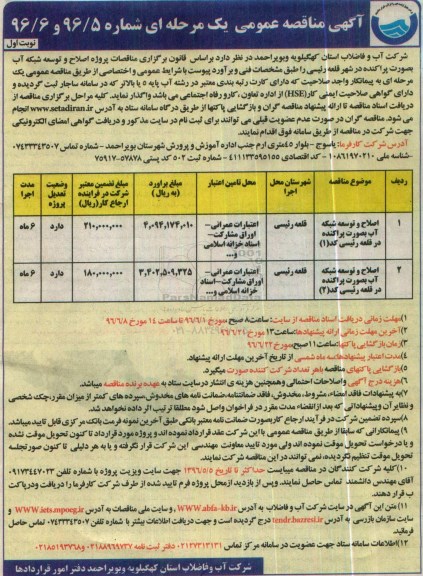 آگهی مناقصه عمومی یک مرحله ای شماره ۹۶/۵ و ۹۶/۶
نوبت اول
شرکت آب و فاضلاب استان کهگیلویه وبویراحمد در نظر دارد براساس قانون برگزاری مناقصات پروژه اصلاح و توسعه شبکه آب
بصورت پراکنده در شهر قلعه رئیسی را طبق مشخصات فنی و برآورد پیوست با شرایط عمومی و اختصاصی از طریق مناقصه عمومی یک
مرحله ای به پیمانکار واجد صلاحیت که دارای کارت رتبه بندی معتبر در رشته آب پایه ۵ یا بالاتر که در سامانه ساجار ثبت گردیده و
دارای گواهی صلاحیت ایمنی کار(HSE) از اداره تعاون، کار و رفاه اجتماعی می باشد واگذار نماید. کلیه مراحل برگزاری مناقصه از
دریافت اسناد مناقصه تا ارائه پیشنهاد مناقصه گران و بازگشایی پاکتها از طریق درگاه سامانه ستاد به آدرس www.setadiran.ir انجام
می شود. مناقصه گران در صورت عدم عضویت قبلی می توانند برای ثبت نام در سایت مذکور و دریافت گواهی امضای الکترونیکی
جهت شرکت در مناقصه از طریق سامانه فوق اقدام نمایند.
آدرس شرکت کارفرما: یاسوج - بلوار ۴۵متری ارم جنب اداره آموزش و پرورش شهرستان بویراحمد - شماره تماس ۰۷۴۳۳۳۴۳۵۰۷
-شناسه ملی ۱۰۸۶۱۹۷۰۲۱۰ - کد اقتصادی ۴۱۱۱۳۳۵۹۵۱۵۵ - شماره ثبت ۵۰۲ کد پستی ۵۷۸۷۸-۷۵۹۱۷
ردیف موضوع مناقصه شهرستان محل اجرا محل تامین اعتبار مبلغ براورد (به ریال) مبلغ تضمین معتبر شرکت در فراینده ارجاع کار(ریال) وضعیت تعدیل پروژه مدت اجرا
۱ اصلاح و توسعه شبکه آب بصورت پراکنده در قلعه رئیسی کد(۱) قلعه رئیسی اعتبارات عمرانی- اوراق مشارکت- اسناد خزانه اسلامی و... ۴,۰۹۴,۱۷۴,۰۱۰ ۲۱۰,۰۰۰,۰۰۰ دارد ۶ ماه
۲ اصلاح و توسعه شبکه آب بصورت پراکنده در قلعه رئیسی کد(۲) قلعه رئیسی اعتبارات عمرانی- اوراق مشارکت-اسناد خزانه اسلامی و... ۳,۴۰۲,۵۰۹,۳۲۵ ۱۸۰,۰۰۰,۰۰۰ دارد ۶ ماه
۱)مهلت زمانی دریافت اسناد مناقصه از سایت: ساعت ۸ صبح مورخ ۹۶/۶/۱ تا ساعت ۱۴ مورخ ۹۶/۶/۸
۲)آخرین مهلت زمانی ارائه پیشنهادها: ساعت ۱۳ مورخ ۹۶/۶/۲۱
۳)زمان بازگشایی پاکتها: ساعت ۱۱ صبح مورخ ۹۶/۶/۲۲
۴)مدت اعتبار پیشنهادها: سه ماه شمسی از تاریخ آخرین مهلت ارائه پیشنهاد.
۵)بازگشایی پاکتهای مناقصه با هر تعداد شرکت کننده صورت میگیرد.
۶)هزینه درج آگهی و اصلاحات احتمالی و همچنین هزینه ی انتشار در سایت ستاد به عهده برنده مناقصه میباشد.
۷)به پیشنهادات فاقد امضاء، مشروط، مخدوش، فاقد ضمانتنامه، ضمانت نامه های مخدوش، سپرده های کمتر از میزان مقرر، چک شخصی
و نظایر آن و پیشنهاداتی که بعد از انقضاء مدت مقرر در فراخوان واصل شود مطلقا ترتیب اثر داده نخواهد شد.
۸)سپرده تضمین شرکت در فرآیند ارجاع کار بصورت ضمانت نامه معتبر بانکی طبق آخرین نمونه فرمت بانک مرکزی قابل تایید میباشد.
۹) پیمانکارانی که سابقا از طریق مناقصه عمومی با این شرکت عقد قرارداد نموده اند و پروژه مورد قرارداد تا کنون تحویل موقت نشده
و یا درخواست تحویل موقت نموده اند ولی مورد تایید معاونت مهندسی این شرکت قرار نگرفته و یا به هر دلیلی تا کنون صورتجلسه
تحویل موقت تنظیم نگردیده، نمی توانند در این مناقصه شرکت نمایند.
۱۰)کلیه شرکت کنندگان در مناقصه میبایست حداکثر تا تاریخ ۱۳۹۶/۶/۵ جهت سایت ویزیت پروژه با شماره تلفن ۰۹۱۷۳۴۴۷۰۲۳
آقای مهندس دانشمند تماس حاصل نمایند. وپس از بازدید از محل پروژه فرم تایید شده از طرف شرکت کارفرما را دریافت ودر پاکت
ب قرار دهند.
۱۱)متن این آگهی در سایت شرکت آب و فاضلاب به آدرس WWW.abfa-kb.ir و سایت ملی مناقصات به آدرس www.iets.mporg.ir و
سایت سازمان بازرسی به آدرس tendr.bazresi.ir درج گردیده است و جهت دریافت اطلاعات بیشتر با شماره تلفن ۰۷۴۳۳۳۴۳۵۰۷ تماس حاصل
فرمائید.
۱۲)اطلاعات سامانه ستاد جهت عضویت در سامانه مرکز تماس ۰۲۱۲۷۳۱۳۱۳۱ دفتر ثبت نامه ۰۲۱۸۸۹۶۹۷۳۷ و ۰۲۱۸۵۱۹۳۷۶۸
شرکت آب وفاضلاب استان کهگیلویه وبویراحمد دفتر امور قراردادها